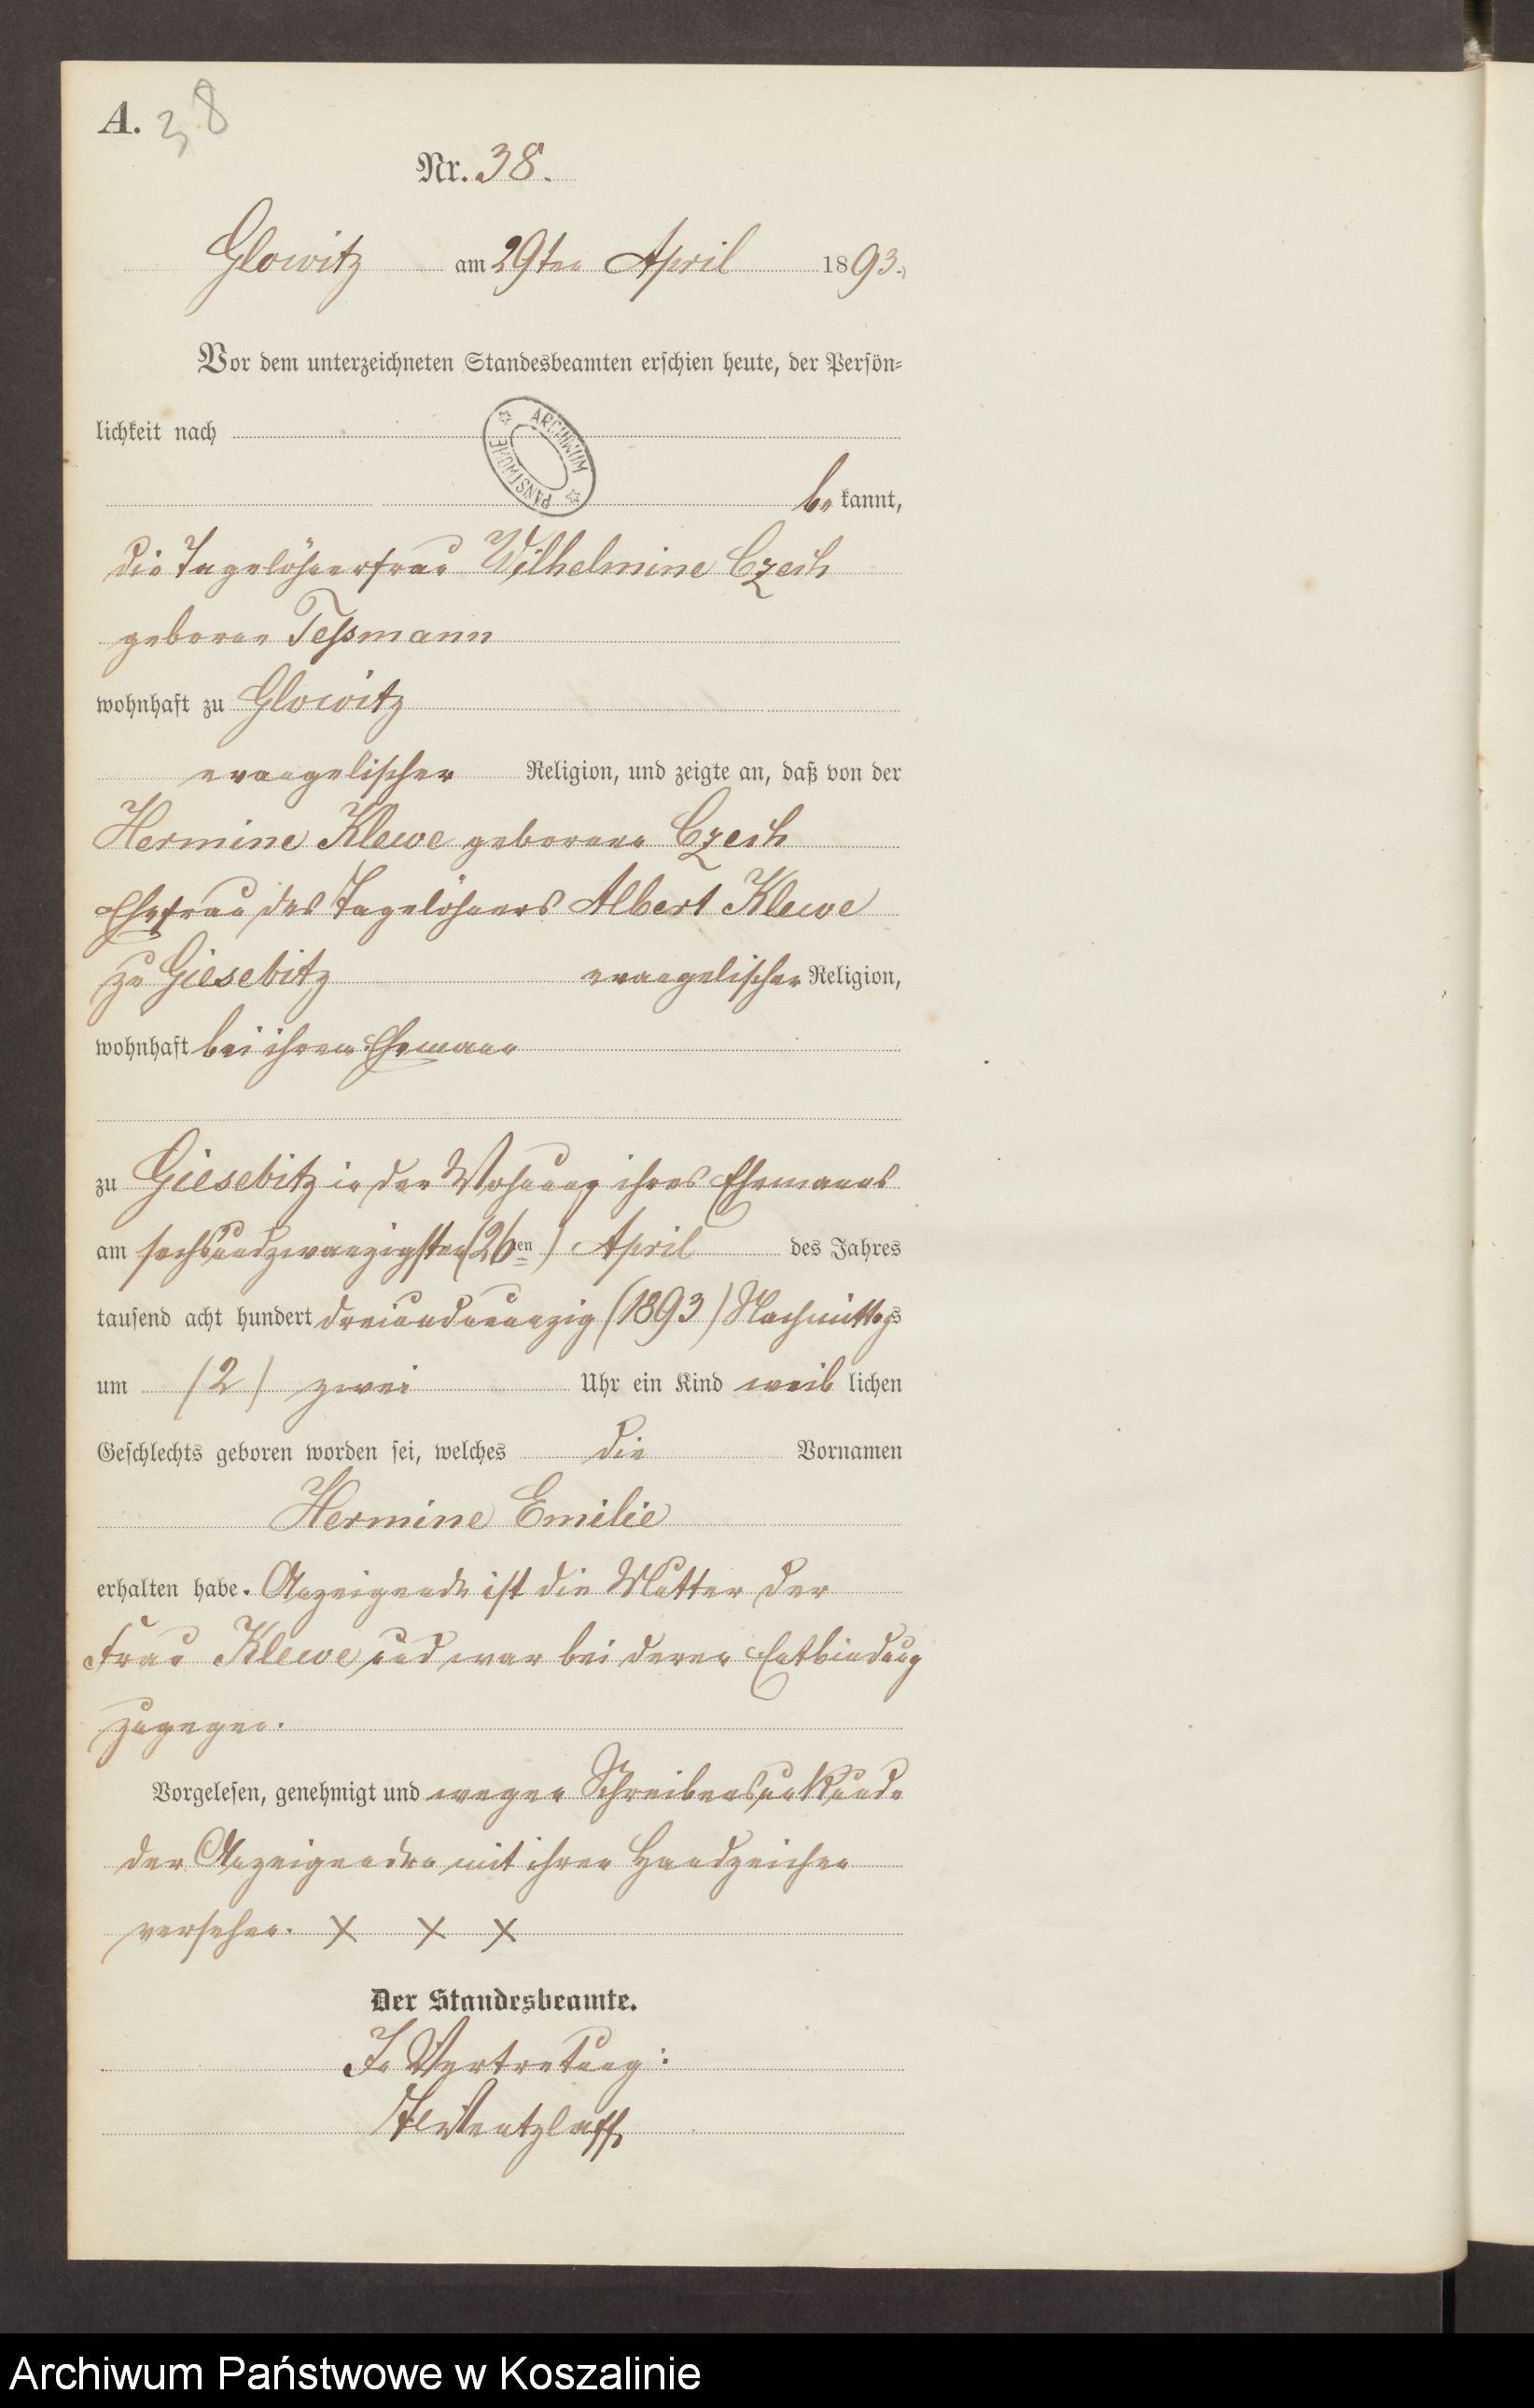 A. 38
Nr. 38.
Glowitz am 29ten April 1893.
Vor dem unterzeichneten Standesbeamten erschien heute, der Persön-
lichkeit nach
ARCHIWUM PAŃSTWOWE
be kannt,
die Tagelöhnerfrau Wilhelmine Czech
geborne Teßmann
wohnhaft zu Glowitz
evangelischer Religion, und zeigte an, daß von der
Hermine Klewe geborene Czech
Ehefrau des Tagelöhners Albert Klewe
zu Giesebitz evangelischer Religion,
wohnhaft bei ihrem Ehemann
zu Giesebitz in der Wohnung ihres Ehemanns
am sechsundzwanzigsten (26ten) April des Jahres
tausend acht hundert dreiundneunzig (1893) Nachmittags
um (2) zwei Uhr ein Kind weib lichen
Geschlechts geboren worden sei, welches die Vornamen
Hermine Emilie
erhalten habe. Anzeigende ist die Mutter der
Frau Klewe und war bei deren Entbindung
zugegen.
Vorgelesen, genehmigt und wegen Schreibensunkunde
der Anzeigenden mit ihren Handzeichen
versehen. X X X
Der Standesbeamte.
In Vertretung:
Wentzlaff
Archiwum Państwowe w Koszalinie